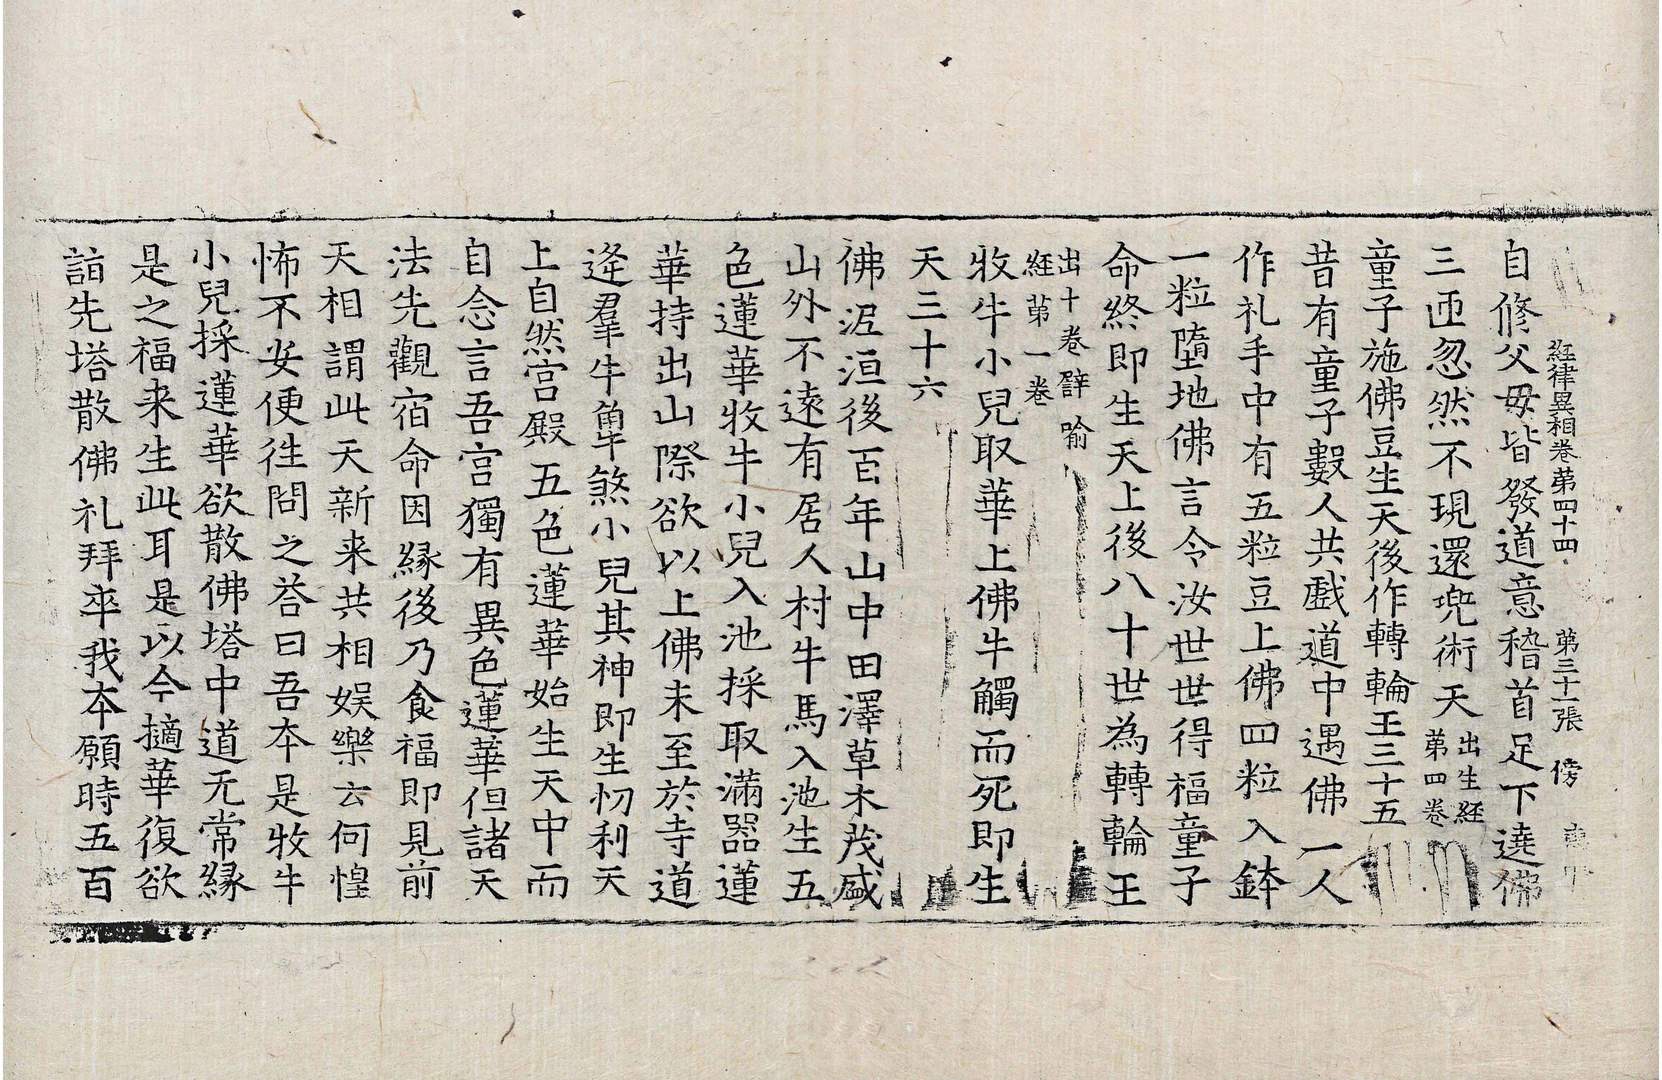 經律異相卷第四十四 第三十一張 傍
自修父母皆發道意稽首足下遶佛
三迊忽然不現還兜術天出生經第四卷
童子施佛豆生天後作轉輪王三十五
昔有童子數人共戲道中遇佛一人
作礼手中有五粒豆上佛四粒入鉢
一粒墮地佛言令汝世世得福童子
命終即生天上後八十世為轉輪王
出十卷譬喻經第一卷
牧牛小兒取華上佛牛觸而死即生
天三十六
佛泥洹後百年山中田澤草木茂盛
山外不遠有居人村牛馬入池生五
色蓮華牧牛小兒入池採取滿器蓮
華持出山際欲以上佛未至於寺道
逢羣牛牛觕煞小兒其神即生忉利天
上自然宮殿五色蓮華始生天中而
自念言吾宮獨有異色蓮華但諸天
法先觀宿命因緣後乃食福即見前
天相謂此天新来共相娛樂云何惶
怖不安便往問之荅曰吾本是牧牛
小兒採蓮華欲散佛塔中道无常緣
是之福来生此耳是以今擿華復欲
詣先塔散佛礼拜卒我本願時五百